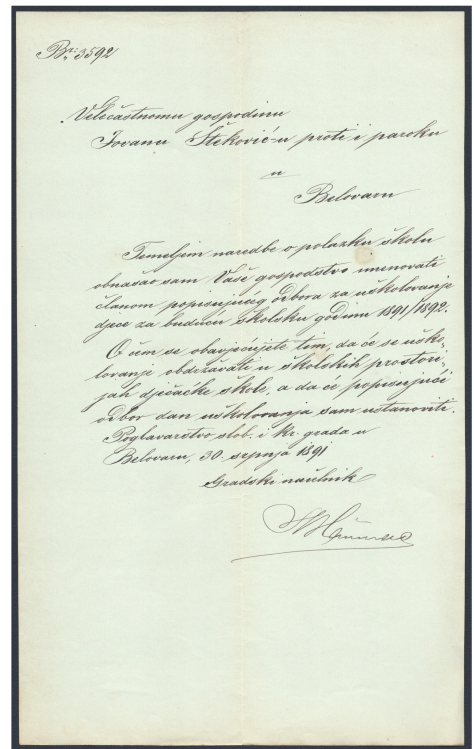 Br: 3592
Veličastnomu gospodinu
Jovanu Šteković-u proti i paroku
u
Belovaru
Temeljem naredbe o polazku škola
obnašao sam Vaše gospodstvo imenovati
članom popisujućeg odbora za uškolovanje
djece za buduću školsku godinu 1891/1892.
O čim se obavješćujete tim, da će se uško-
lovanje obdržavati u školskih prostori-
jah dječačke škole, a da će popisujući
odbor dan uškolovanja sam ustanoviti.
Poglavarstvo slob. i kr. grada u
Belovaru, 30. srpnja 1891
Gradski načelnik